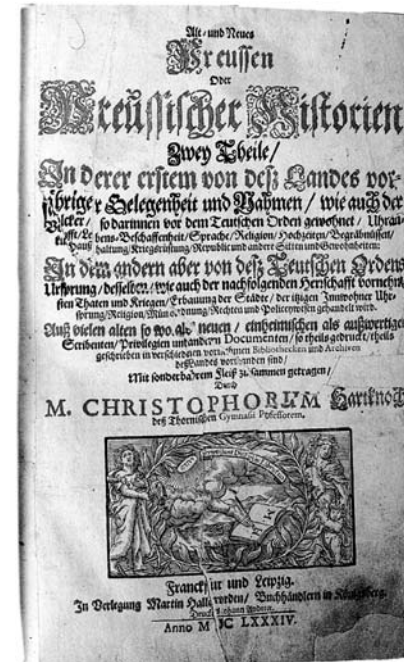 Alt- und Neues
Preussen
Oder
Preussischer Historien
Zwey Theile/
In derer erstem von deß Landes vor-
jähriger Gelegenheit und Nahmen / wie auch der
Völcker / so darinnen vor dem Teutschen Orden gewohnet / Uhran-
kunfft / Lebens-Beschaffenheit / Sprache / Religion / Hochzeiten / Begräbnüssen /
Haußhaltung / Kriegsrüstung / Republic und andere Sitten und Gewohnheiten:
In dem andern aber von deß Teutschen Ordens
Ursprung / desselben / wie auch der nachfolgenden Herrschafft vornehm-
sten Thaten und Kriegen / Erbauung der Städte / der itzigen Innwohner Uhr-
sprung / Religion / Müntzordnung / Rechten und Policeywesen gehandelt wird.
Auß vielen alten so wol als neuen / einheimischen als außwertigen
Scribenten / Privilegien und andern Documenten / so theils gedruckt / theils
geschrieben in verschiedenen vornehmen Bibliothecken und Archiven
deß Landes vorhanden sind /
Mit sonderbahrem Fleiß zusammen getragen /
Durch
M. CHRISTOPHORUM Hartknoch
deß Thornischen Gymnasii Professorem.
Franckfurt und Leipzig.
In Verlegung Martin Hallervorden / Buchhändlern in Königsberg.
Druckts Johann Andreæ.
Anno M DC LXXXIV.